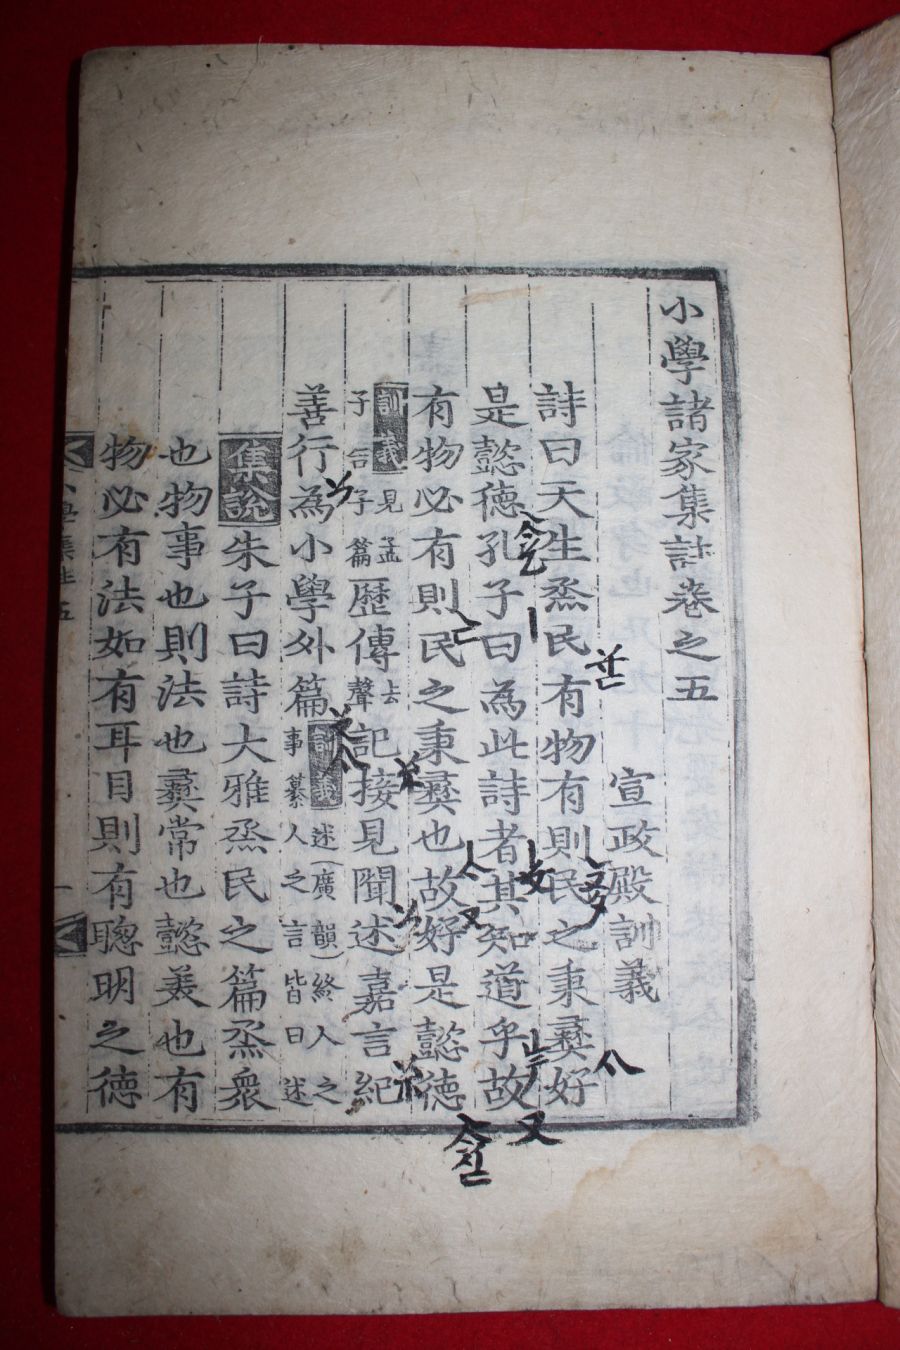 小學諸家集註卷之五
宣政殿訓義
詩曰天生烝民有物有則民之秉彛好
是懿德孔子曰為此詩者其知道乎故
有物必有則民之秉彛也故好是懿德
訓義見孟子告子篇歷傳去聲記接見聞述嘉言紀
善行為小學外篇訓義述(廣韻)終人之事纂人之言皆曰述
集說朱子曰詩大雅烝民之篇烝衆
也物事也則法也彛常也懿美也有
物必有法如有耳目則有聰明之德